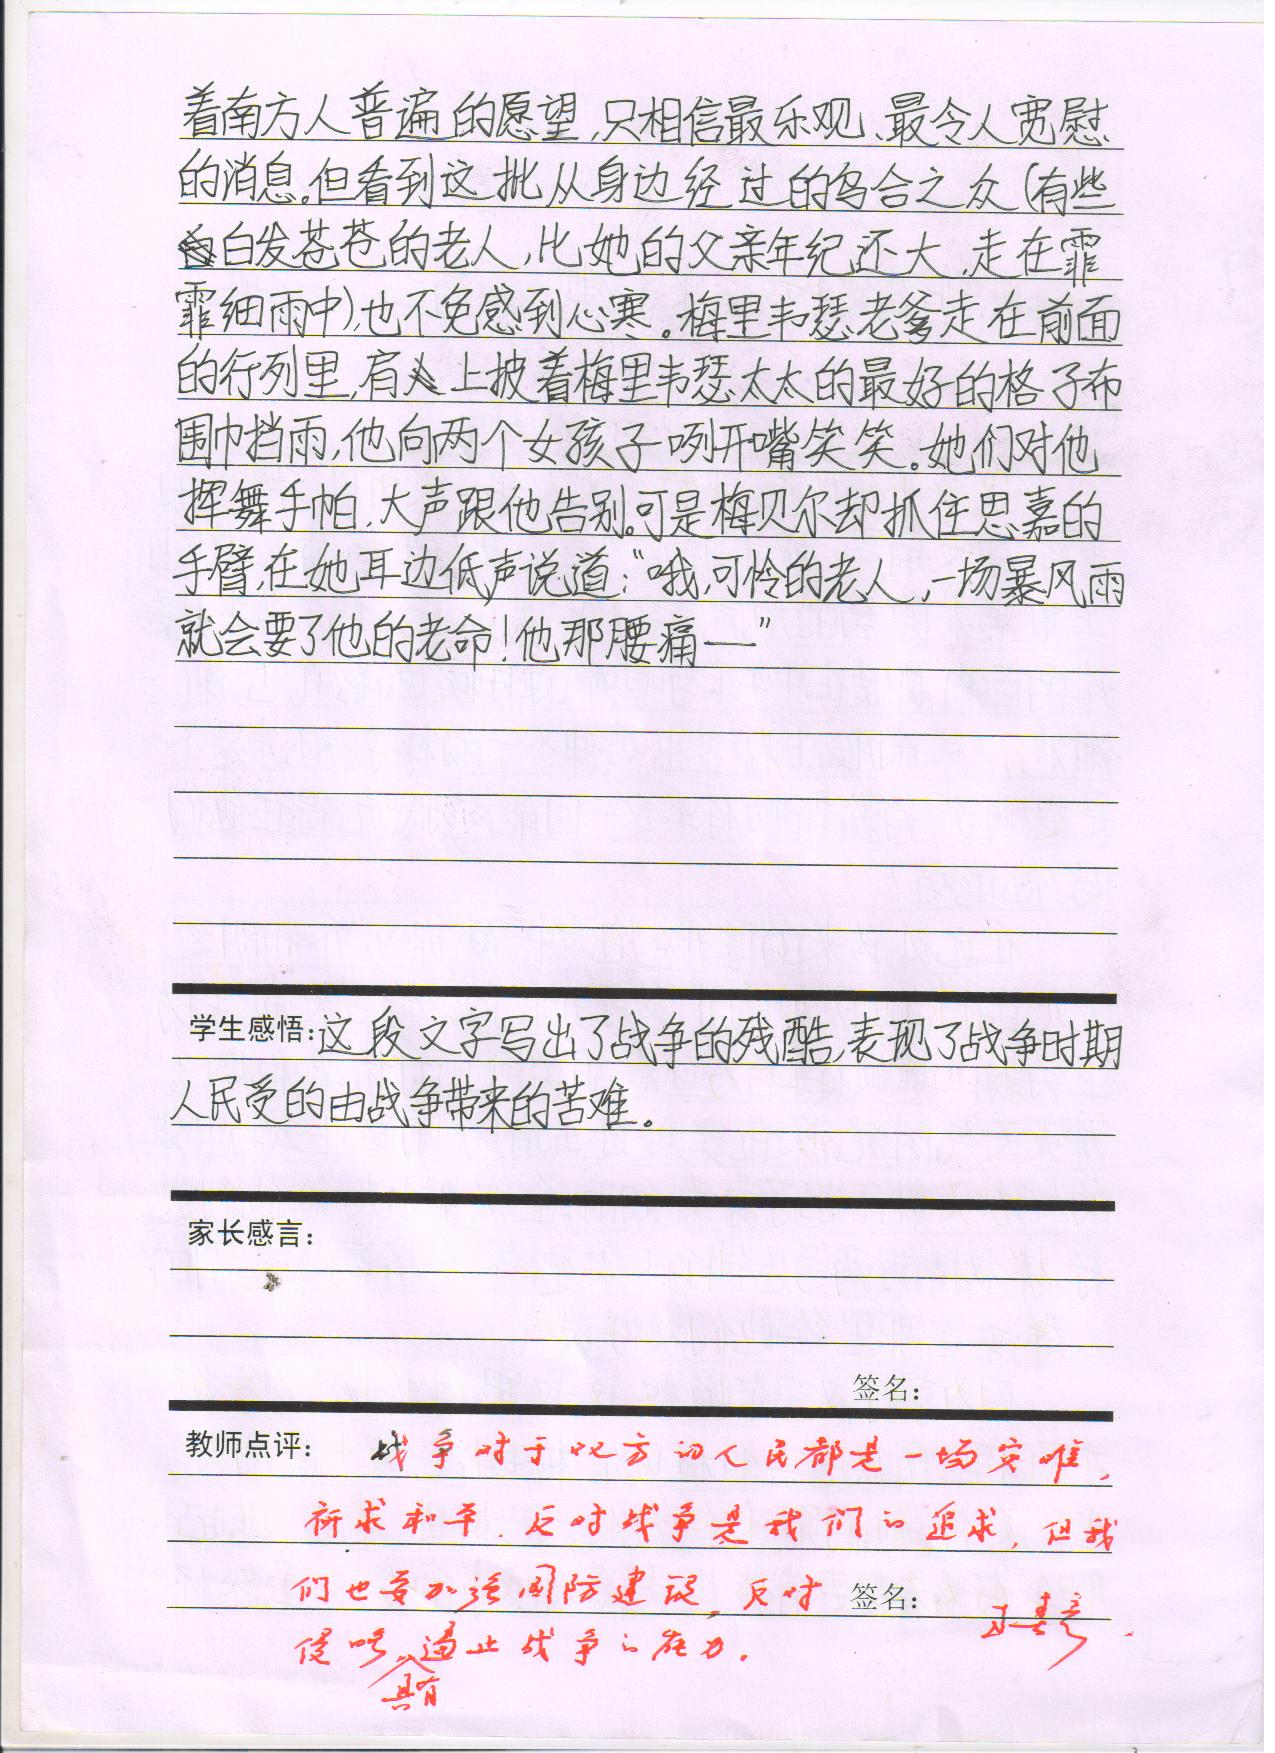 着南方人普遍的愿望,只相信最乐观、最令人宽慰
的消息。但看到这批从身边经过的乌合之众(有些
白发苍苍的老人,比她的父亲年纪还大,走在霏
霏细雨中),也不免感到心寒。梅里韦瑟老爹走在前面
的行列里,肩上披着梅里韦瑟太太的最好的格子布
围巾挡雨,他向两个女孩子咧开嘴笑笑。她们对他
挥舞手帕,大声跟他告别。可是梅贝尔却抓住思嘉的
手臂,在她耳边低声说道:“哦,可怜的老人,一场暴风雨
就会要了他的老命!他那腰痛——”
学生感悟:这段文字写出了战争的残酷,表现了战争时期
人民受的由战争带来的苦难。
家长感言:
签名:
教师点评: 战争对于双方的人民都是一场灾难,
祈求和平、反对战争是我们的追求,但我
们也要加强国防建设,反对 签名:
侵略,具有遏止战争的能力.